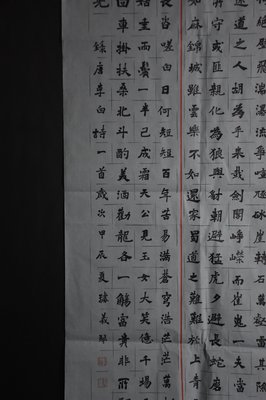 絕壁飛湍瀑流爭喧豗冰崖轉石
遠道之人胡為乎來哉劍閣崢嶸而崔嵬一夫當
將守或匪親化為狼與豺朝避猛虎夕避長蛇磨
如麻錦城雖雲樂不如還家蜀道之難難於上青
長咨嗟白日何短短百年苦易滿蒼穹浩茫茫萬
姑垂兩鬢一半已成霜天公見玉女大笑億千場
回車掛扶桑北斗酌美酒勸龍各一觴富貴非所
光
錄唐李白詩一首歲次甲辰夏義琴